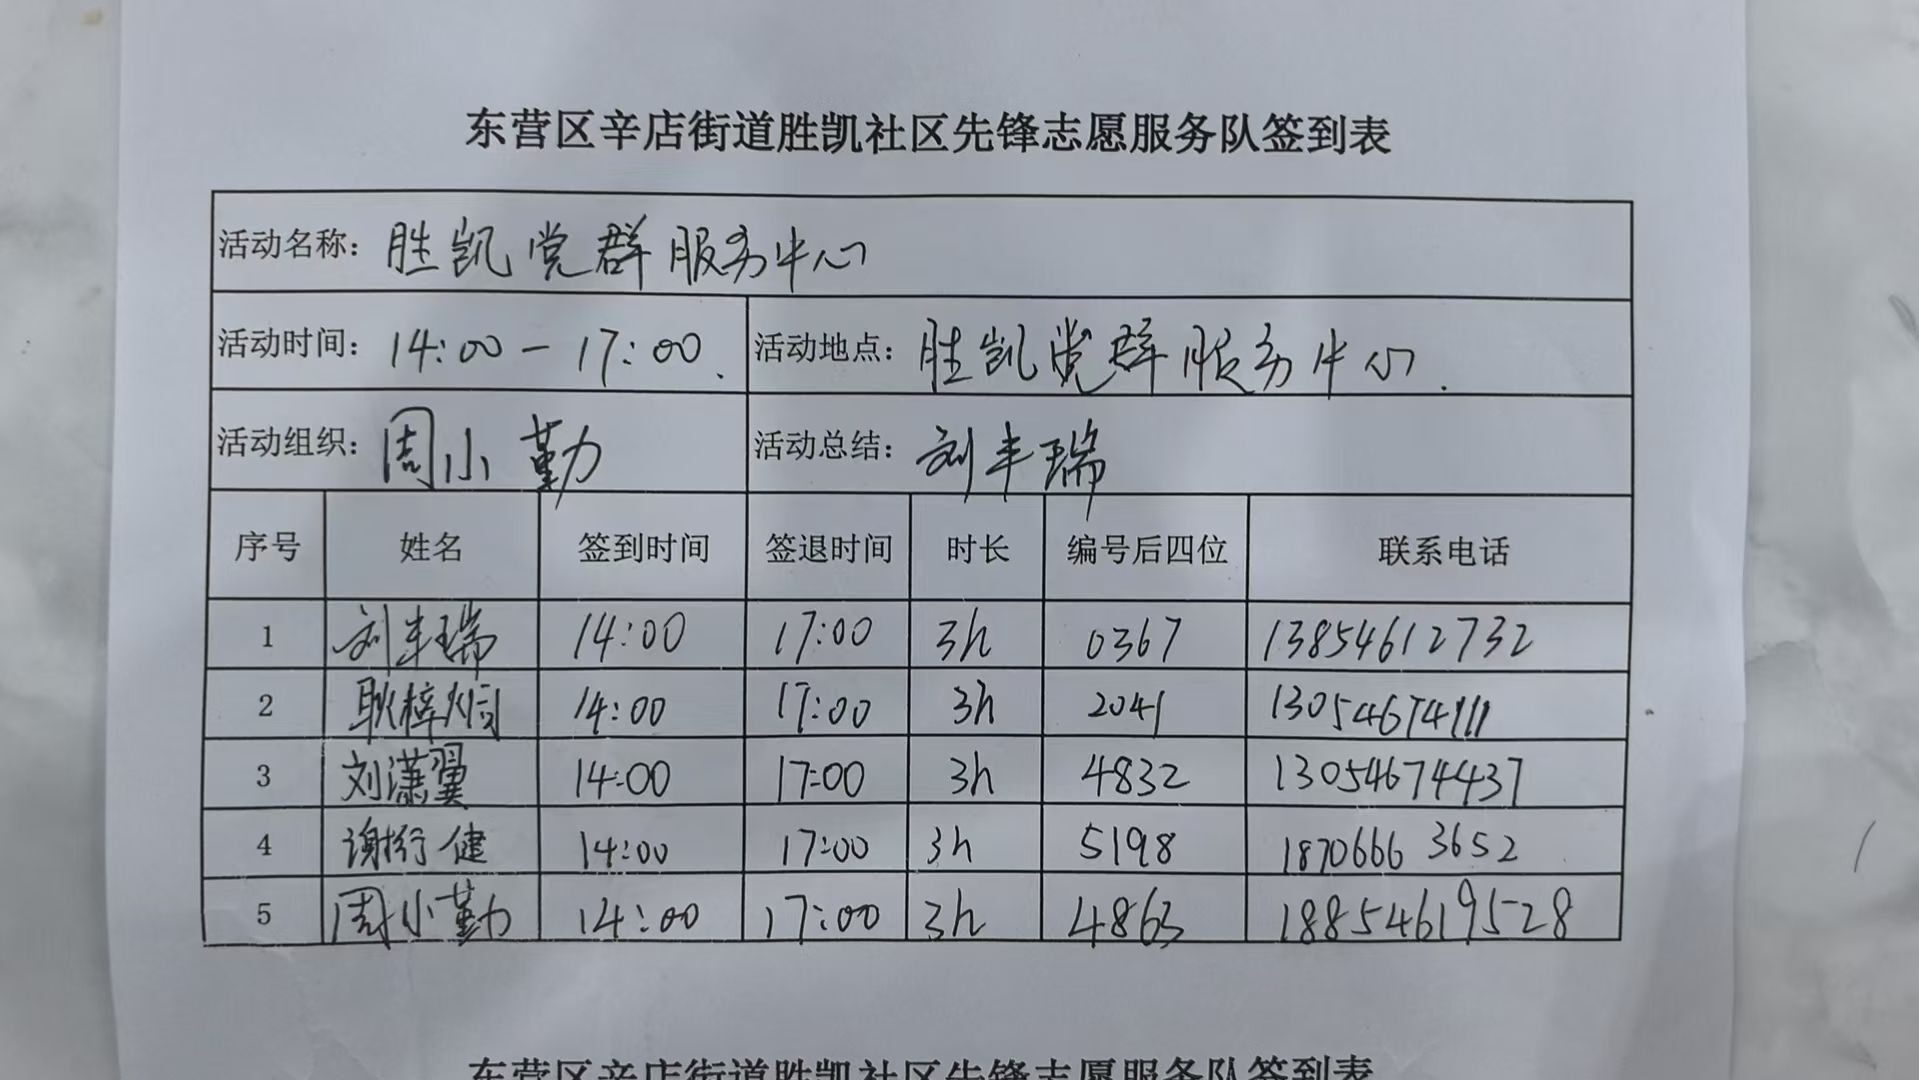 东营区辛店街道胜凯社区先锋志愿服务队签到表
活动名称：胜凯党群服务中心
活动时间：14:00－17:00. 活动地点：胜凯党群服务中心.
活动组织：周小勤 活动总结：刘丰瑞
序号 姓名 签到时间 签退时间 时长 编号后四位 联系电话
1 刘丰瑞 14:00 17:00 3h 0367 13854612732
2 耿梓炯 14:00 17:00 3h 2041 13054674111
3 刘潇翼 14:00 17:00 3h 4832 13054674437
4 谢珩健 14:00 17:00 3h 5198 18706663652
5 周小勤 14:00 17:00 3h 4863 18854619528
东营区辛店街道胜凯社区先锋志愿服务队签到表